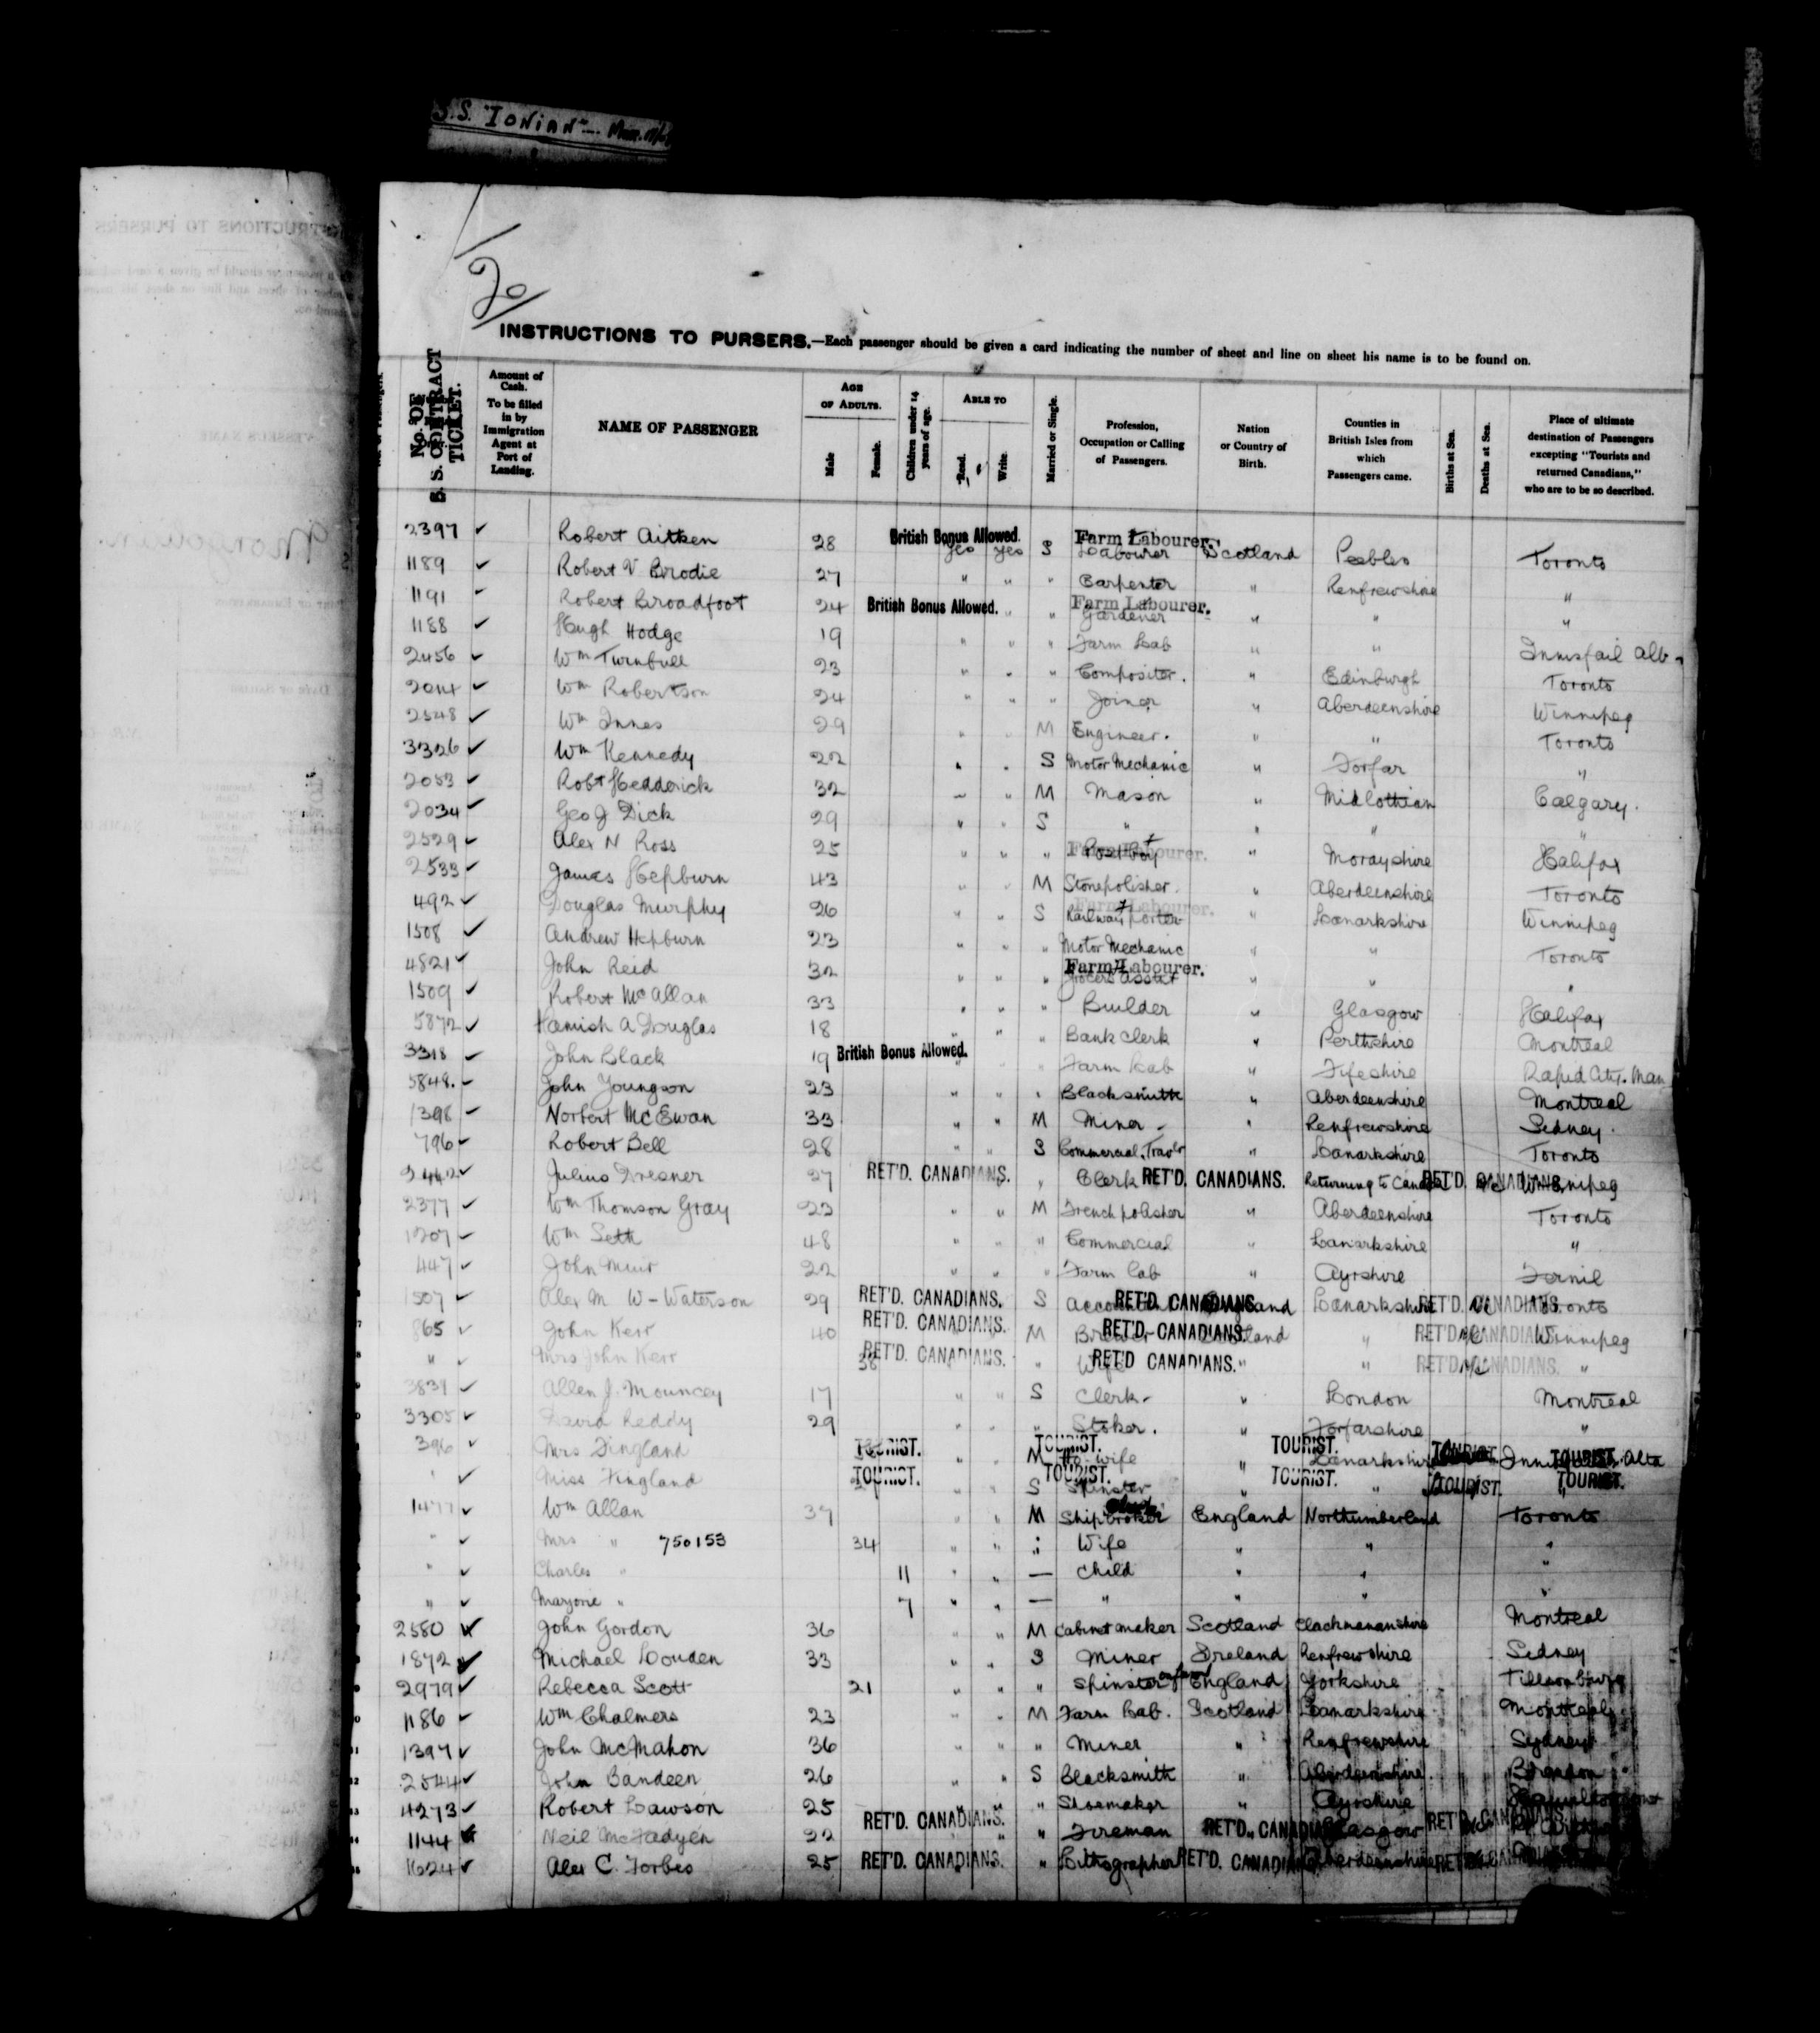 S.S. "IONIAN"
20/
INSTRUCTIONS TO PURSERS.—Each passenger should be given a card indicating the number of sheet and line on sheet his name is to be found on.
No. OF S. S. CONTRACT TICKET. Amount of Cash. To be filled in by Immigration Agent at Port of Landing. NAME OF PASSENGER AGE OF ADULTS. Male Female. Children under 14 years of age. ABLE TO Read. Write. Married or Single. Profession, Occupation or Calling of Passengers. Nation or Country of Birth. Counties in British Isles from which Passengers came. Births at Sea. Deaths at Sea. Place of ultimate destination of Passengers excepting "Tourists and returned Canadians," who are to be so described.
2397 ✓ Robert Aitken 28 British Bonus Allowed. yes yes S Farm Labourer. Labourer Scotland Peebles Toronto
1189 ✓ Robert V Brodie 27 " " " Carpenter " Renfrewshire "
1191 ✓ Robert Broadfoot 24 British Bonus Allowed. " " Farm Labourer. Gardener " " "
1188 ✓ Hugh Hodge 19 " " " Farm Lab " " Innisfail Alb
2456 ✓ Wm Turnbull 23 " " " Compositor. " Edinburgh Toronto
2014 ✓ Wm Robertson 24 " " " Joiner " Aberdeenshire Winnipeg
2548 ✓ Wm Innes 29 " " M Engineer. " " Toronto
3326 ✓ Wm Kennedy 22 " " S Motor Mechanic " Forfar "
2053 ✓ Robt Hedderick 32 " " M Mason " Midlothian Calgary.
2034 ✓ Geo J Dick 29 " " S " " " "
2529 ✓ Alex N Ross 25 " " " Farm Labourer. " Morayshire Halifax
2533 ✓ James Hepburn 43 " " M Stonepolisher. " Aberdeenshire Toronto
492 ✓ Douglas Murphy 26 " " S Farm Labourer. Railway porter " Lanarkshire Winnipeg
1508 ✓ Andrew Hepburn 23 " " " Motor Mechanic " " Toronto
4821 ✓ John Reid 32 " " " Farm Labourer. Grocers Assist " " "
1509 ✓ Robert McAllan 33 " " " Builder " Glasgow Halifax
5872 ✓ Hamish A Douglas 18 " " " Bank Clerk " Perthshire Montreal
3318 ✓ John Black 19 British Bonus Allowed. " " " Farm Lab " Fifeshire Rapid City. Man
5848. ✓ John Youngson 23 " " " Blacksmith " Aberdeenshire Montreal
1398 ✓ Norbert McEwan 33 " " M Miner " Renfrewshire Sidney.
796 ✓ Robert Bell 28 " " S Commercial Travlr " Lanarkshire Toronto
2442 ✓ Julius Dresner 27 RET'D. CANADIANS. " Clerk RET'D. CANADIANS. Returning to Canada RET'D. CANADIANS. Winnipeg
2377 ✓ Wm Thomson Gray 23 " " M French polisher " Aberdeenshire Toronto
1207 ✓ Wm Seth 48 " " " Commercial " Lanarkshire "
447 ✓ John Muir 22 " " " Farm Lab " Ayrshire Fernil
1507 ✓ Alex M. W-Waterson 29 RET'D. CANADIANS. S RET'D. CANADIANS. Lanarkshire RET'D. CANADIANS. Toronto
865 ✓ John Kerr 40 RET'D. CANADIANS. M RET'D. CANADIANS. " RET'D. CANADIANS. Winnipeg
" ✓ Mrs John Kerr 38 RET'D. CANADIANS. " Wife RET'D CANADIANS. " " RET'D. CANADIANS. "
3839 ✓ Allen J. Mouncey 17 " " S Clerk " London Montreal
3305 ✓ David Reddy 29 " " " Stoker. " Forfarshire "
396 ✓ Mrs Fingland TOURIST. " M TOURIST. Ho. wife TOURIST. " Lanarkshire TOURIST. Innisfail Alta TOURIST.
" ✓ Miss Fingland TOURIST. " " S TOURIST. Spinster TOURIST. " " TOURIST. TOURIST.
1477 ✓ Wm Allan 39 " " M Shipbroker England Northumberland Toronto
" ✓ Mrs " 750153 34 " " " Wife " " "
" ✓ Charles " 11 " " — Child " " "
" ✓ Marjorie " 7 " " — " " " "
2580 ✓ John Gordon 36 " " M Cabinet maker Scotland Clackmananshire Montreal
1872 ✓ Michael Louden 33 " " S Miner Ireland Renfrewshire Sidney
2979 ✓ Rebecca Scott 21 " " " Spinster England Yorkshire Tillsonburg
1186 ✓ Wm Chalmers 23 " " M Farm Lab. Scotland Lanarkshire Montreal
1397 ✓ John McMahon 36 " " " Miner " Renfrewshire Sydney
2544 ✓ John Bandeen 26 " " S Blacksmith " Aberdeenshire Brandon
4273 ✓ Robert Lawson 25 " " " Shoemaker " Ayrshire Hamilton
1144 ✓ Neil McFadyen 22 RET'D. CANADIANS. " Fireman RET'D. CANADIANS. Glasgow RET'D. CANADIANS.
1624 ✓ Alex C. Forbes 25 RET'D. CANADIANS. " Lithographer RET'D. CANADIANS. Aberdeenshire RET'D. CANADIANS.